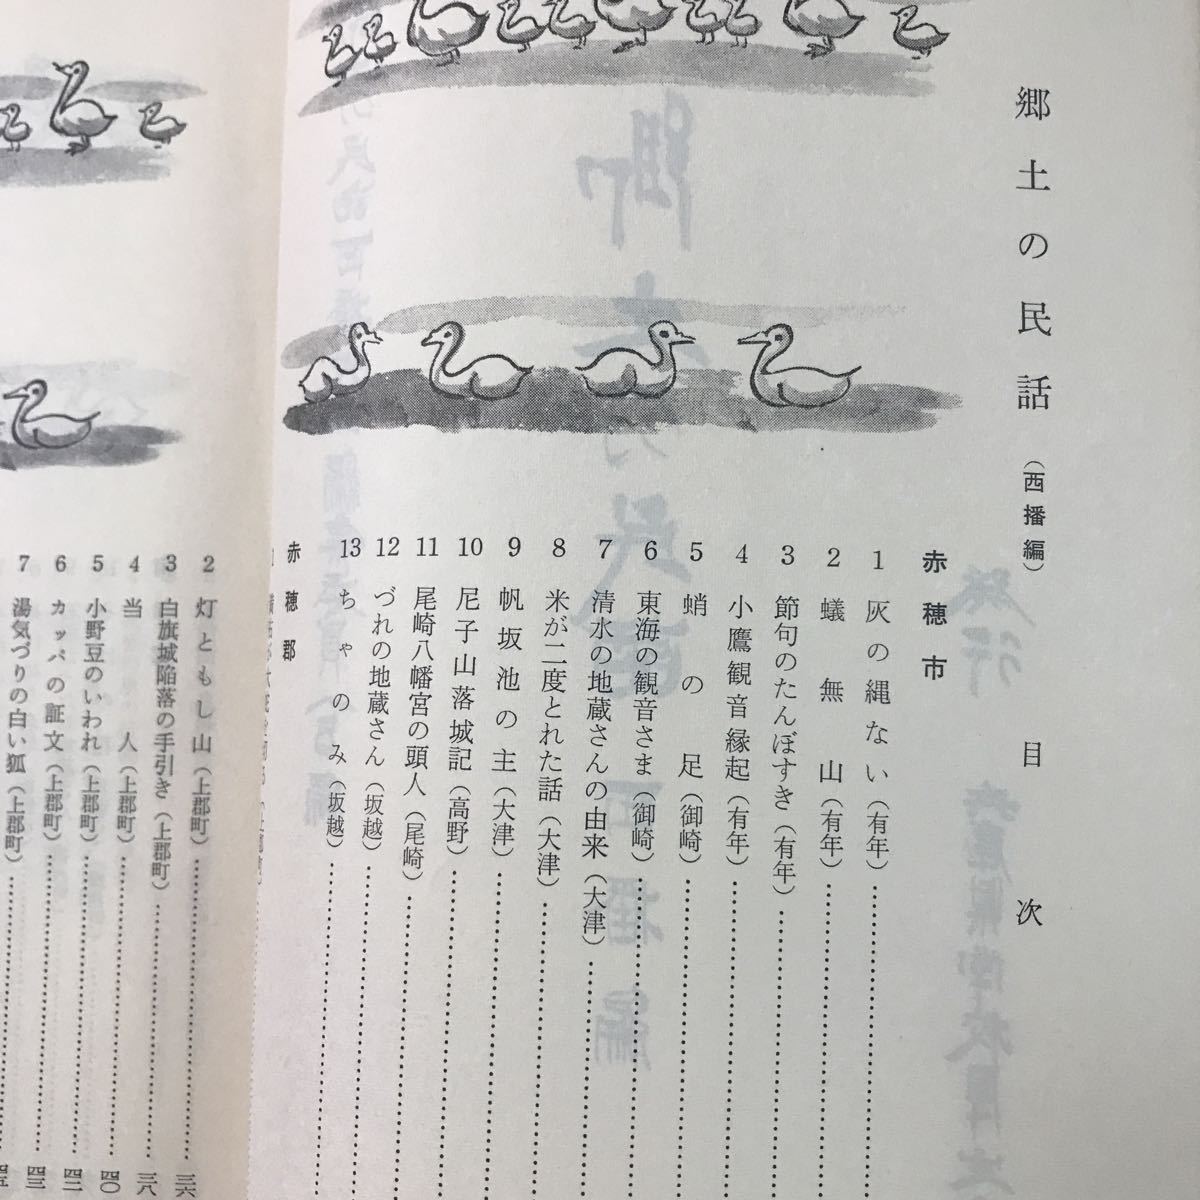 郷土の民話（西播編）　目次
赤穂市
1　灰の縄ない（有年）
2　蟻無山（有年）
3　節句のたんぼすき（有年）
4　小鷹観音縁起（有年）
5　蛸の足（御崎）
6　東海の観音さま（御崎）
7　清水の地蔵さんの由来（大津）
8　米が二度とれた話（大津）
9　帆坂池の主（大津）
10　尼子山落城記（高野）
11　尾崎八幡宮の頭人（尾崎）
12　づれの地蔵さん（坂越）
13　ちゃのみ（坂越）
赤穂郡
2　灯ともし山（上郡町）　三六
3　白旗城陥落の手引き（上郡町）　三八
4　当人（上郡町）　四〇
5　小野豆のいわれ（上郡町）　四一
6　カッパの証文（上郡町）　四三
7　湯気づりの白い狐（上郡町）　四五